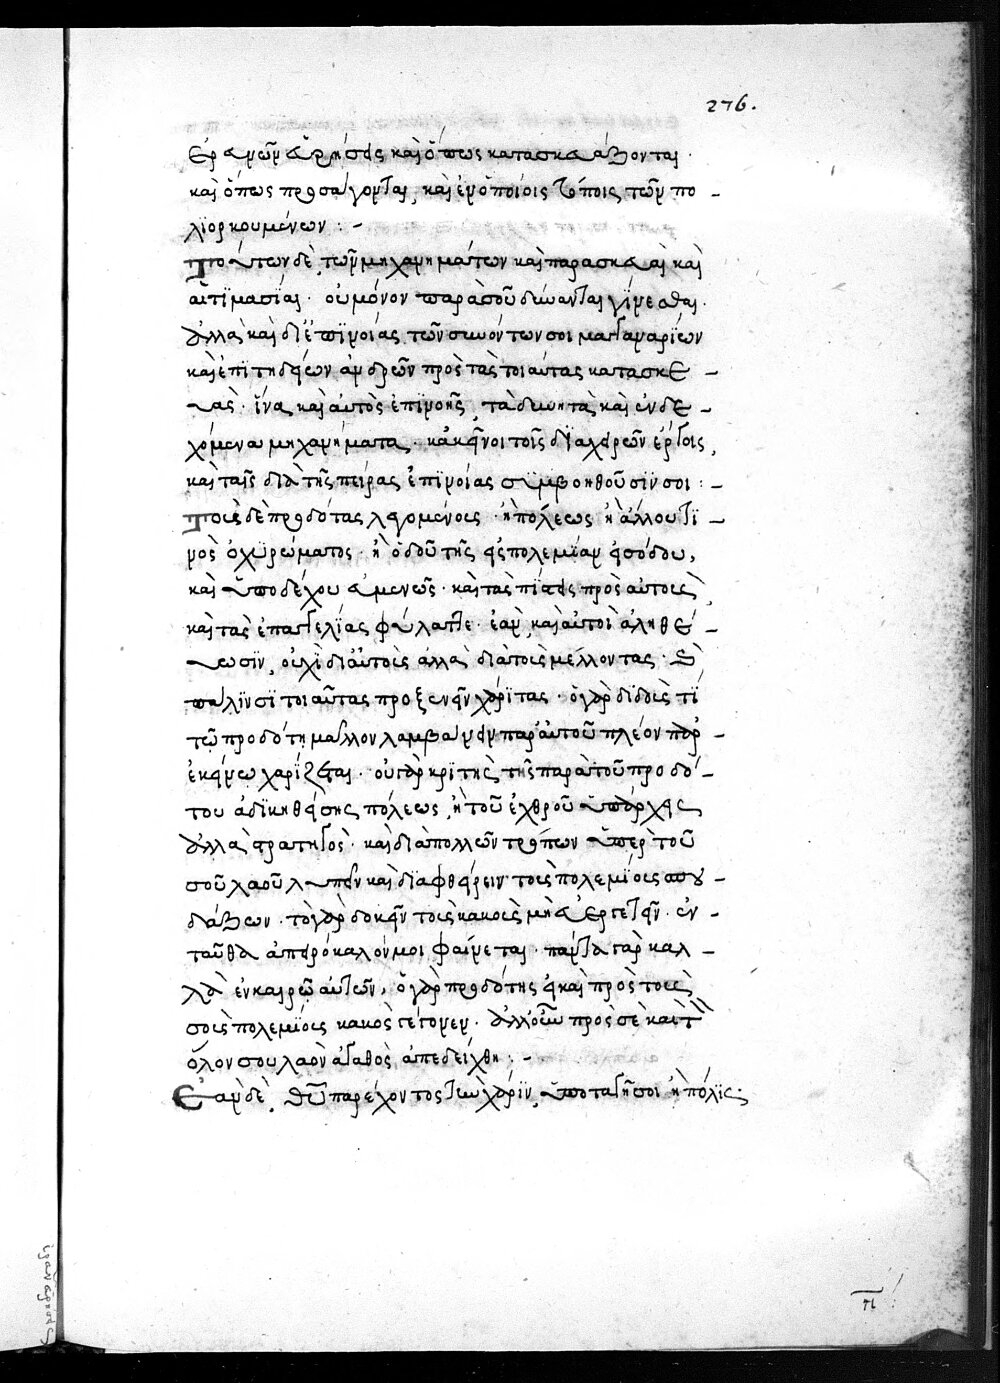 276.
ἐξ ἀμῶν εὑρήσεις καὶ ὅπως κατασκευάζονται·
καὶ ὅπως προσάγονται, καὶ ἐν ὁποίοις τόποις τῶν πο-
λϊορκουμένων :-
Τούτων δὲ τῶν μηχανημάτων καὶ παρασκευαὶ καὶ
ἑτϊμασίαι· οὐ μόνον παρὰ σοῦ δύνανται γίνεσθαι·
ἀλλὰ καὶ δι' ἐπϊνοίας τῶν συνόντων σοι μαγγαναρίων
καὶ ἐπιτηδείων ἀνδρῶν πρὸς τὰς τοιαύτας κατασκε-
υὰς· ἵνα καὶ αὐτὸς ἐπϊνοῇς τὰ δυνητὰ καὶ ἐνδε-
χόμενα μηχανήματα· κἀκεῖνοι τοῖς δϊὰ χειρῶν ἔργοις,
καὶ ταῖς διὰ τῆς πείρας ἐπϊνοίας συμβοηθοῦσϊν σοι :-
Τοὺς δὲ προδότας λεγομένους ἢ πόλεως ἢ ἄλλου τϊ-
νὸς ὀχϊρώματος· ἢ ὁδοῦ τῆς εἰς πολεμίαν εἰσόδου,
καὶ ὑποδέχου εὐμενῶς· καὶ τὰς πίστεις πρὸς αὐτοὺς
καὶ τὰς ἐπαγγελίας φύλαττε· ἐὰν καὶ αὐτοὶ ἀληθέ-
υωσϊν, οὐχὶ δι' αὐτοὺς ἀλλὰ διὰ τοὺς μέλλοντας·
πάλϊν σϊ τοιαύτας προξενεῖν χάρϊτας· ὁ γὰρ δϊδοὺς τῒ
τῷ προδότῃ μᾶλλον λαμβάνειν παρ' αὐτοῦ πλέον παρ'
ἐκείνω χαρίζεται· οὐ γὰρ κριτὴς τῆς παρὰ τοῦ προδό-
του ἀδϊκηθείσης πόλεως, ἢ τοῦ ἐχθροῦ ὑπάρχεις
ἀλλὰ στρατηγὸς· καὶ διὰ πολλῶν τρόπων ὑπὲρ τοῦ
σοῦ λαοῦ λυπεῖν καὶ διαφθείρειν τοὺς πολεμίους σπου-
δάζων· τὸ γὰρ δοκεῖν τοὺς κακοὺς μὴ εὐεργετεῖν· ἐν-
ταῦθα ἀπειρόκαλόν μοι φαίνεται· πάντα γὰρ καλ-
λὰ ἐν καιρῶ αὐτῶν, ὁ γὰρ προδότης εἰ καὶ πρὸς τοὺς
σοὺς πολεμίους κακὸς γέγονεν· ἀλλ' οὖν πρὸς σὲ καὶ τὸν
ὅλον σου λαὸν ἀγαθὸς ἀπεδείχθη :-
Ἐὰν δὲ θεοῦ παρέχοντος τὴν χάρϊν, ὑποταγῇ σοι ἡ πόλϊς·